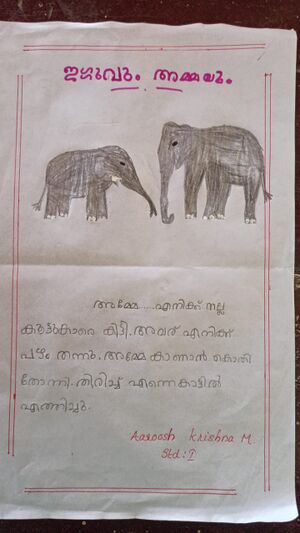 ഇഗുവും അമ്മയും
അമ്മേ.....എനിക്ക് നല്ല
കൂട്ടുകാരെ കിട്ടി. അവര് എനിക്ക്
പഴം തന്നു. അമ്മേ കാണാൻ കൊതി
തോന്നി. തിരിച്ച് എന്നെകാട്ടിൽ
എത്തിച്ചു.
Aaroosh Krishna M.
Std: I